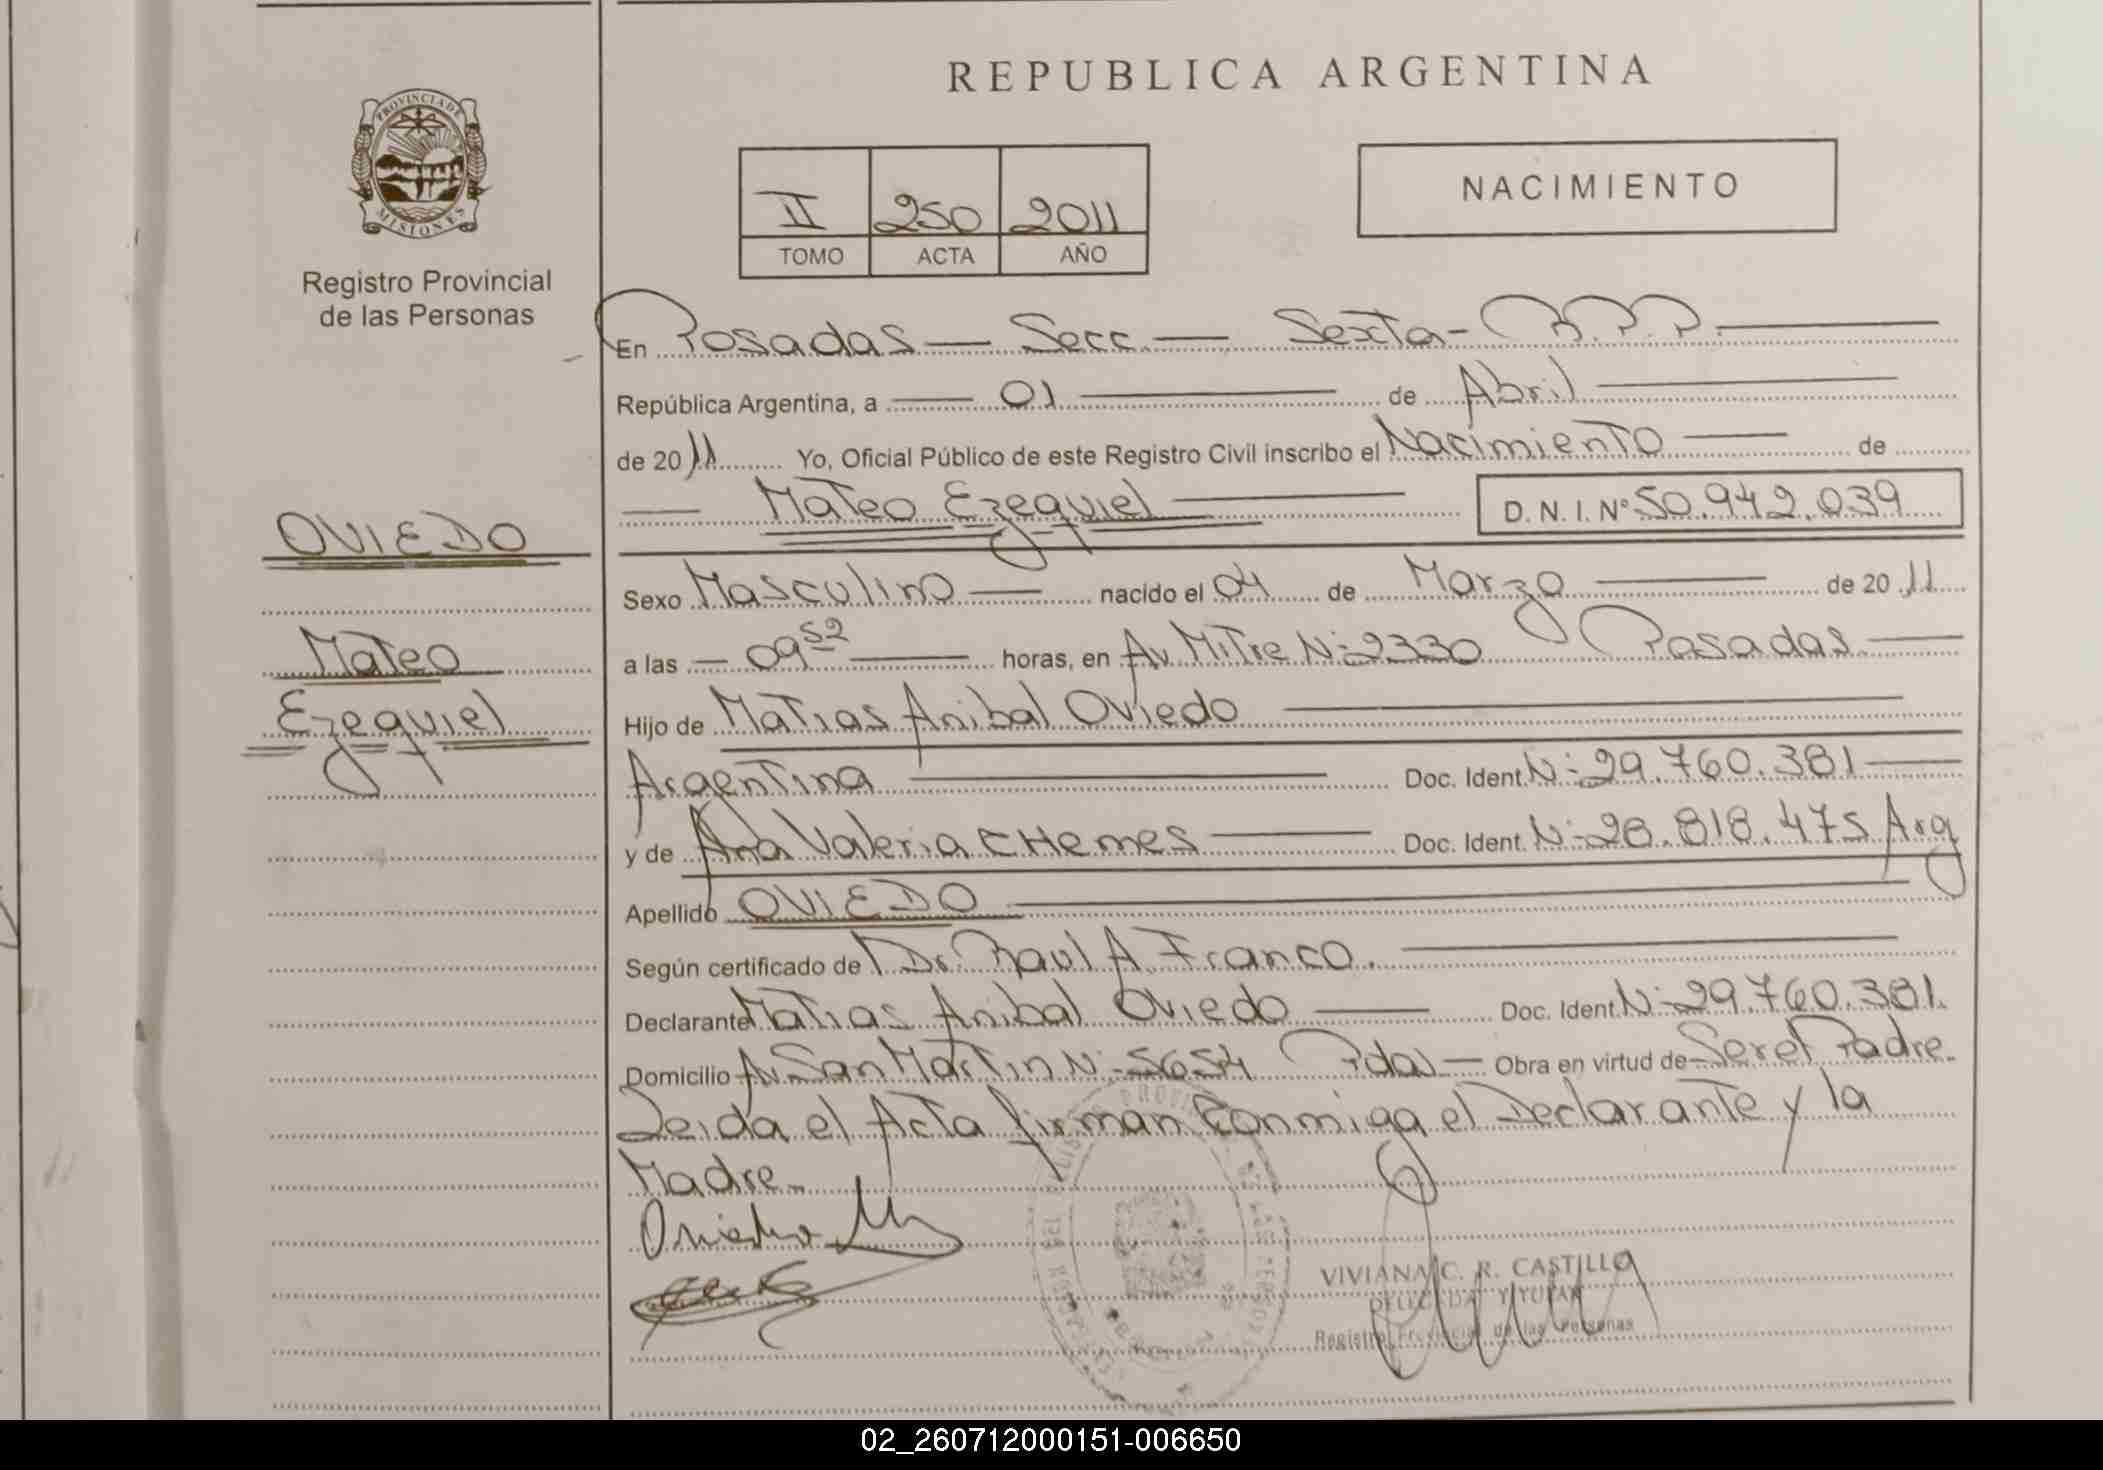 REPUBLICA ARGENTINA
PROVINCIA DE
MISIONES
Registro Provincial
de las Personas
II 250 2011
TOMO ACTA AÑO
NACIMIENTO
En Posadas — Secc — Sexta - R.P.P.
República Argentina, a — 01 — de Abril
de 2011 Yo, Oficial Público de este Registro Civil inscribo el Nacimiento — de
— Mateo Ezequiel — D.N.I. Nº 50.942.039
OVIEDO
Mateo
Ezequiel
Sexo Masculino — nacido el 04 de Marzo — de 2011
a las — 09 52 — horas, en Av Mitre Nº 2330 Posadas —
Hijo de Matias Anibal Oviedo —
Argentina — Doc. Ident. Nº 29.760.381 —
y de Ana Valeria CHemes — Doc. Ident. Nº 28.818.475 Arg
Apellido OVIEDO —
Según certificado de Dr. Raul A Franco. —
Declarante Matias Anibal Oviedo — Doc. Ident. Nº 29.760.381.
Domicilio Av San Martin Nº 5654 Pdas — Obra en virtud de Ser el Padre
Leida el Acta firman Conmigo el Declarante y la
Madre -
Oviedo M
VIVIANA C. R. CASTILLO
DELEGADA TITULAR
Registro Provincial de las Personas
02_260712000151-006650